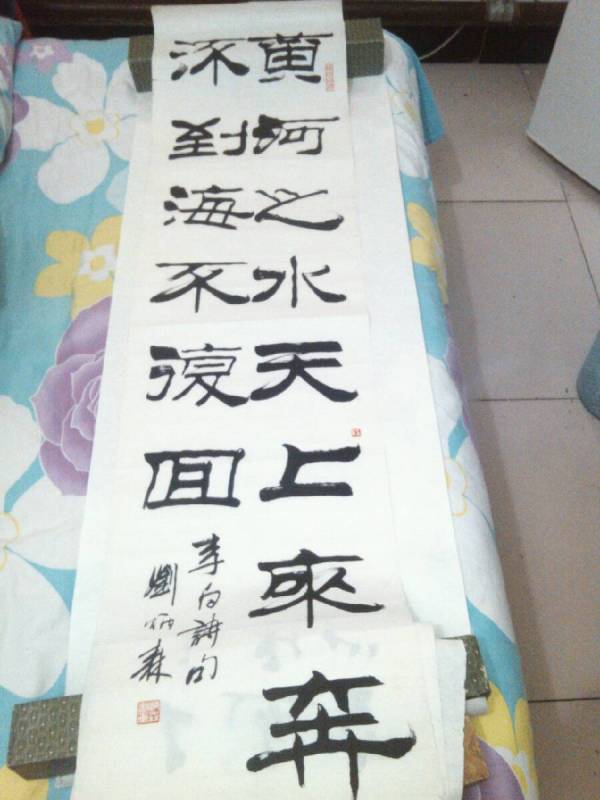 黄河之水天上來奔
流到海不復回
李白诗句
劉炳森